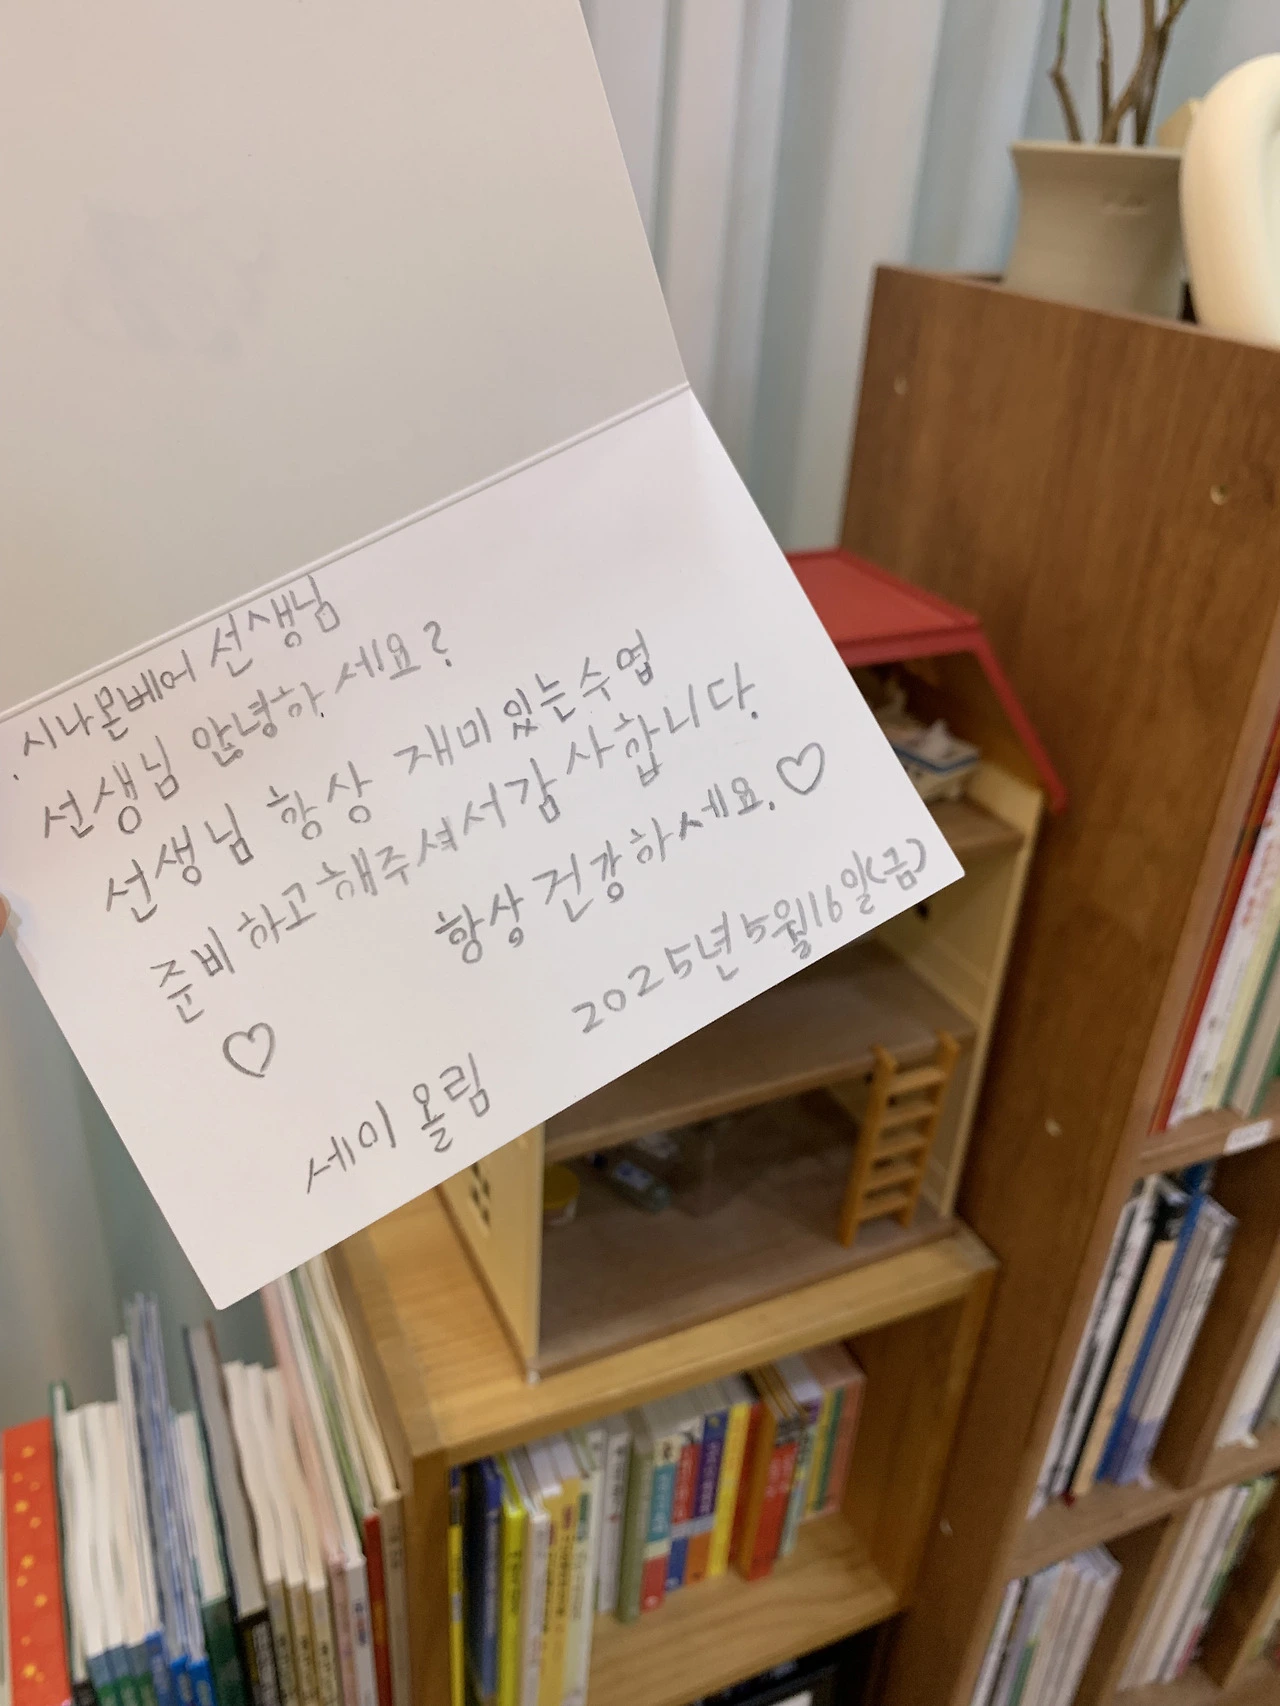 시나몬베어 선생님
선생님 안녕하세요?
선생님 항상 재미있는수업
준비하고해주셔서감사합니다.
항상건강하세요.♡
♡ 2025년5월16일(금)
세이 올림